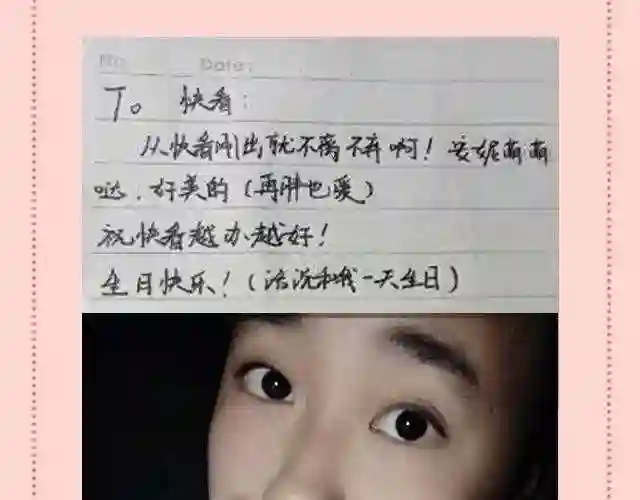 No. Date:
To 快看:
从快看刚出就不离不弃啊！安妮萌萌
哒，好美的（再胖也爱）
祝快看越办越好！
生日快乐！（话说和我一天生日）